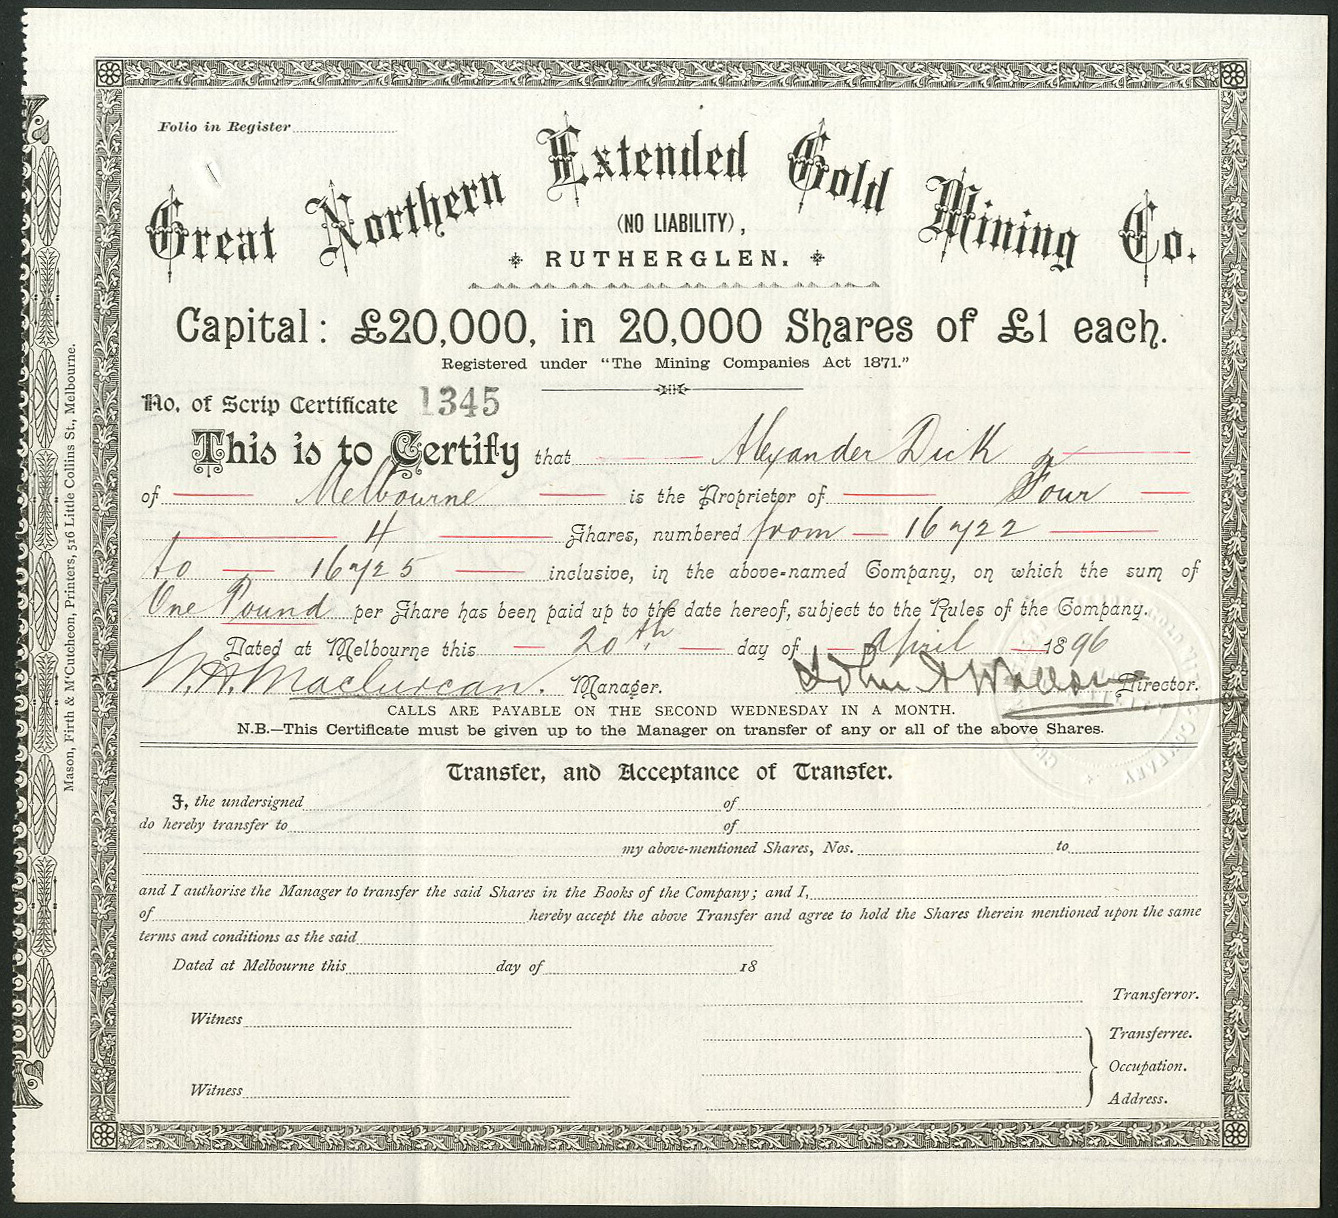 Folio in Register
Great Northern Extended Gold Mining Co.
(NO LIABILITY),
RUTHERGLEN.
Capital: £20,000, in 20,000 Shares of £1 each.
Registered under "The Mining Companies Act 1871."
No. of Scrip Certificate 1345
This is to Certify that Alexander Dick
of Melbourne is the Proprietor of Four
4 Shares, numbered from 16722
to 16725 inclusive, in the above-named Company, on which the sum of
One Pound per Share has been paid up to the date hereof, subject to the Rules of the Company.
Dated at Melbourne this 20th day of April 1896
Manager. John A Wallace Director.
CALLS ARE PAYABLE ON THE SECOND WEDNESDAY IN A MONTH.
N.B.—This Certificate must be given up to the Manager on transfer of any or all of the above Shares.
Transfer, and Acceptance of Transfer.
I, the undersigned of
do hereby transfer to of
my above-mentioned Shares, Nos. to
and I authorise the Manager to transfer the said Shares in the Books of the Company; and I,
of hereby accept the above Transfer and agree to hold the Shares therein mentioned upon the same
terms and conditions as the said
Dated at Melbourne this day of 18
Transferror.
Witness
Transferree.
Occupation.
Witness
Address.
Mason, Firth & M'Cutcheon, Printers, 516 Little Collins St., Melbourne.